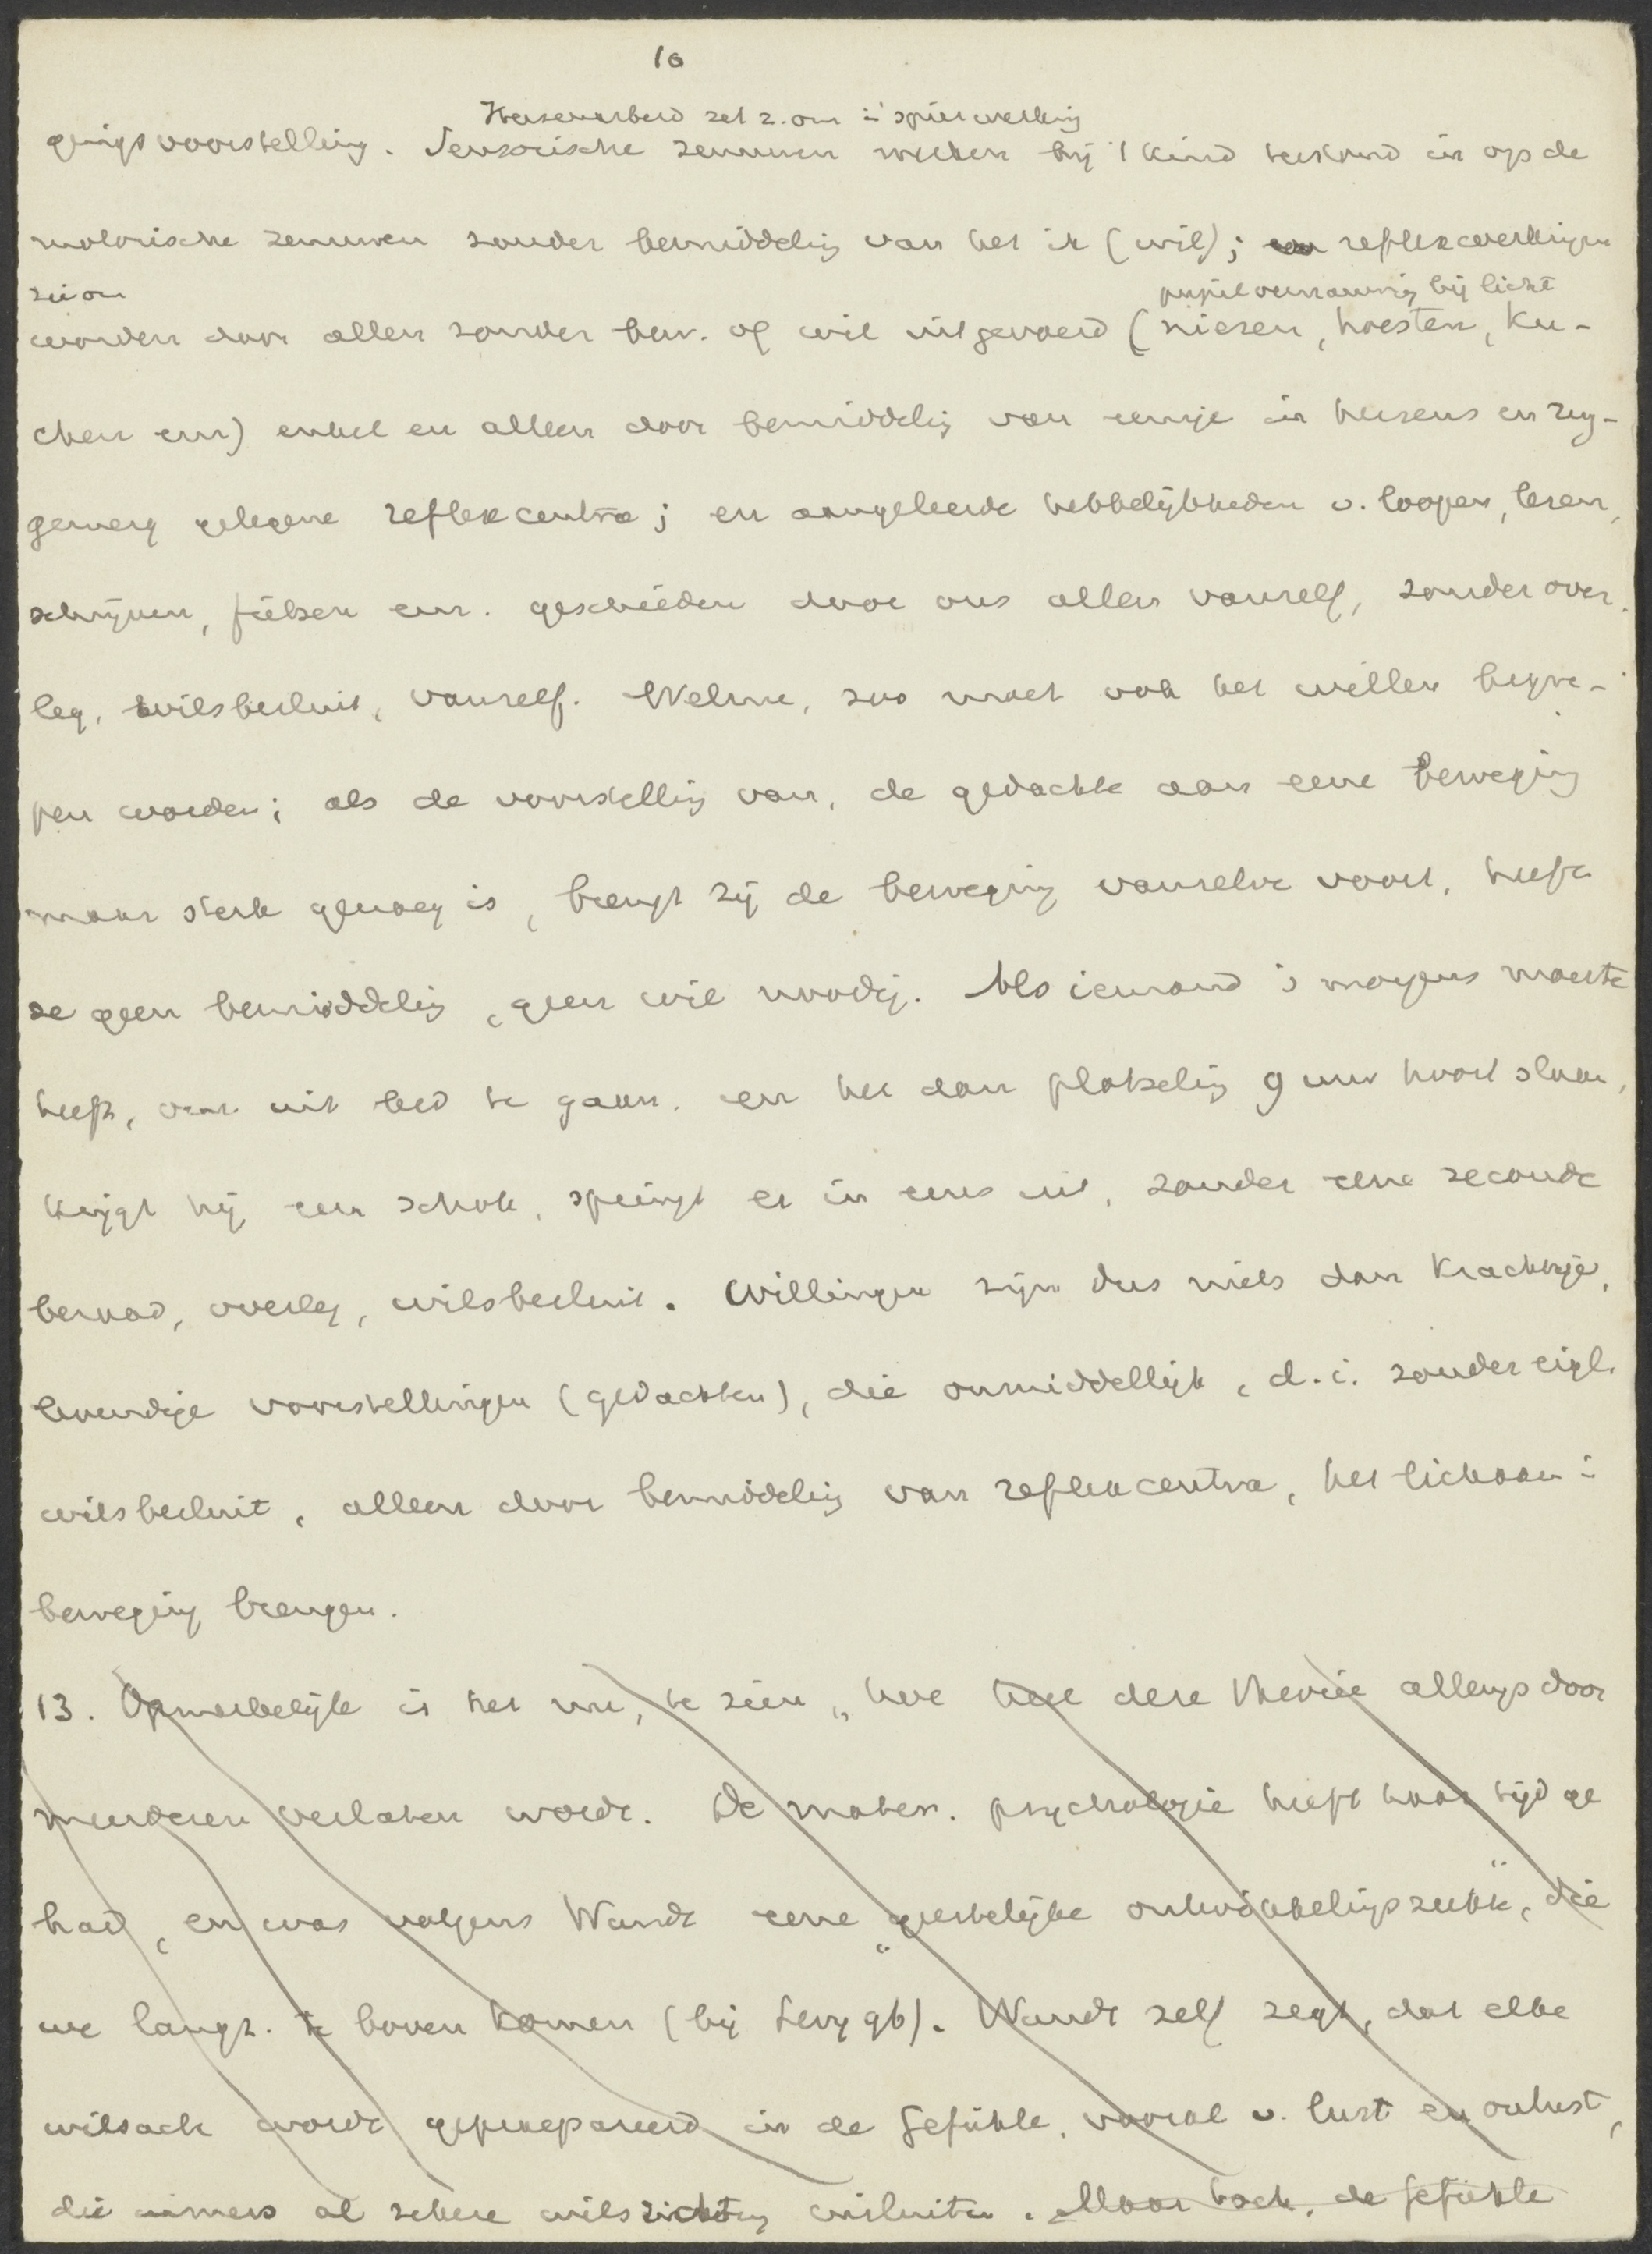 10
Hersenarbeid zet z. om in spierwerking
gingsvoorstelling. Sensorische zenuwen werken bij 't kind terstond in op de
motorische zenuwen zonder bemiddeling van het ik (wil); reflexwerkingen
worden door allen zonder bew. of wil uitgevoerd (niezen, hoesten, ku-
pupilvernauwing bij licht
chen enz) enkel en alleen door bemiddeling van eenige in hersens en rug-
gemerg gelegene reflexcentra; en aangeleerde hebbelijkheden v. loopen, lezen,
schrijven, fietsen enz. geschieden door ons allen vanzelf, zonder over-
leg, wilsbesluit, vanzelf. Welnu, zoo moet ook het willen begre-
pen worden; als de voorstelling van, de gedachte aan eene beweging
maar sterk genoeg is, brengt zij de beweging vanzelve voort, heeft
ze geen bemiddeling, geen wil noodig. Als iemand 's morgens moeite
heeft, om uit bed te gaan, en het dan plotseling 9 uur hoort slaan,
krijgt hij een schok, springt er in eens uit, zonder eene seconde
beraad, overleg, wilsbesluit. Willingen zijn dus niets dan krachtige,
levendige voorstellingen (gedachten), die onmiddellijk, d.i. zonder eigl.
wilsbesluit, alleen door bemiddeling van reflexcentra, het lichaam in
beweging brengen.
13. Opmerkelijk is het nu, te zien, hoe deze theorie allengs door
meerderen verlaten wordt. De mater. psychologie heeft haar tijd ge
had, en was volgens Wundt eene „geestelijke ontwikkelingsziekte", die
we langz. te boven komen (bij Levy 96). Wundt zelf zegt, dat elke
wilsact wordt geprepareerd in de Gefühle, vooral v. lust en onlust,
die immers al zekere wilsrichting insluiten. Maar toch, de Gefühle